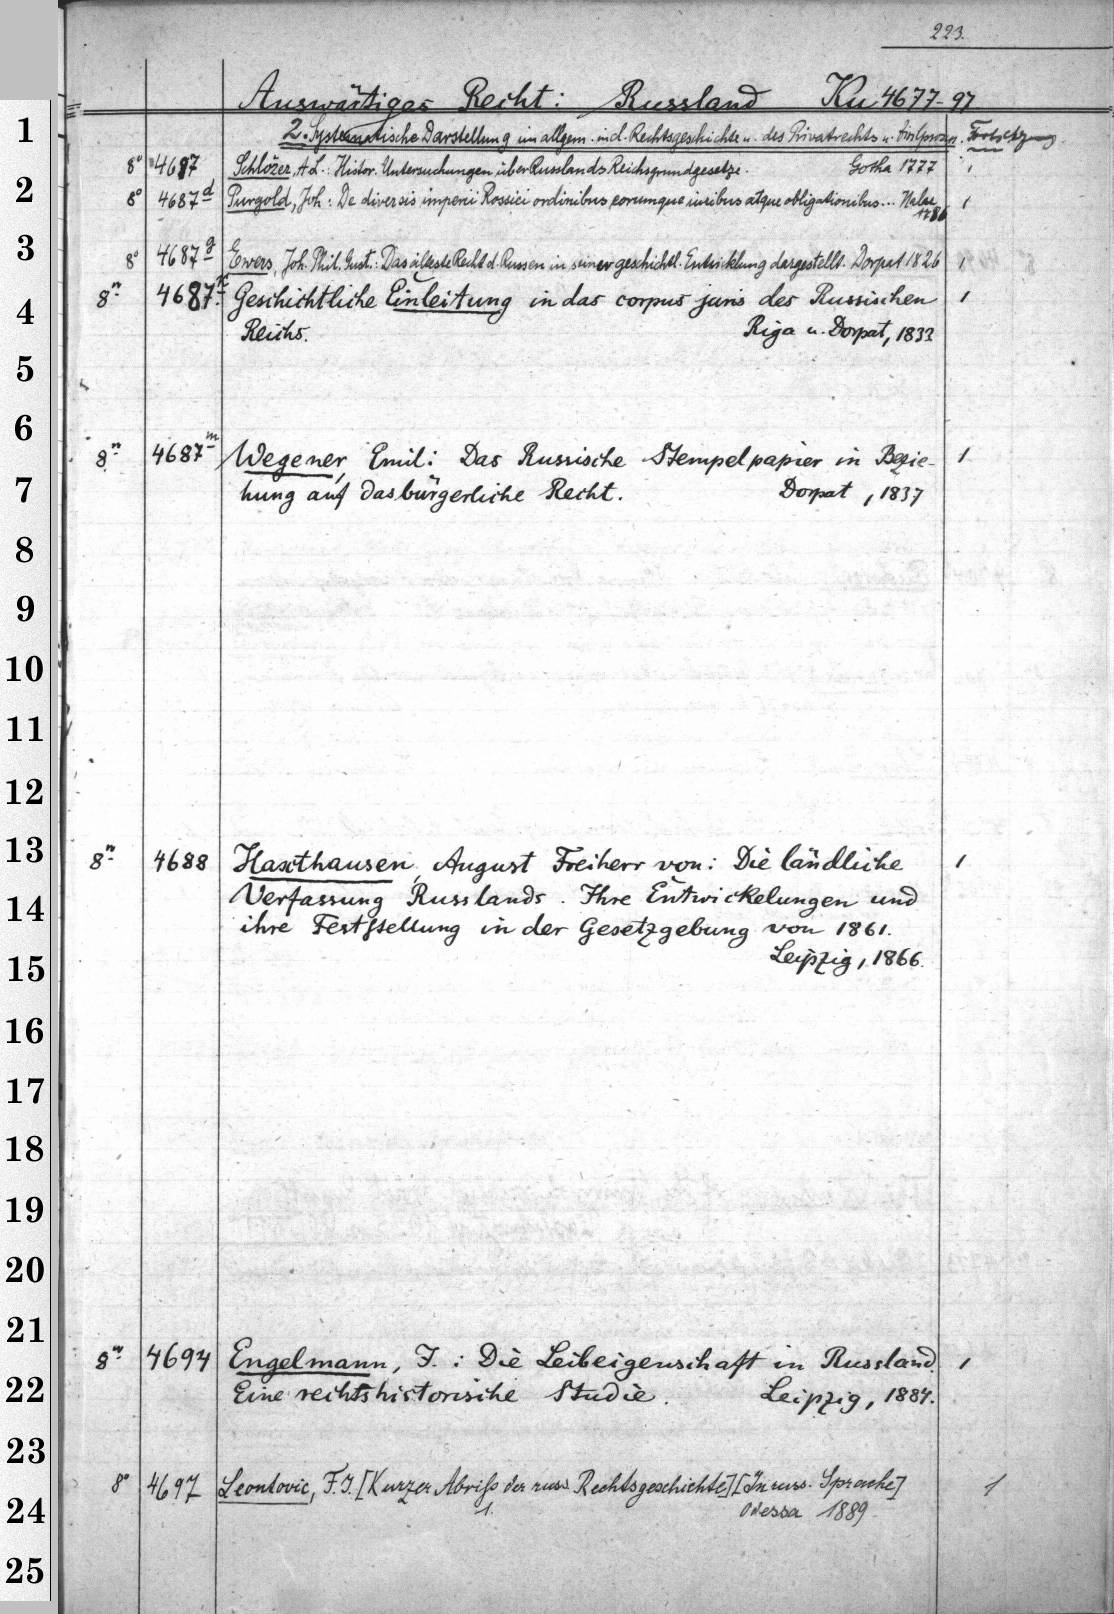 223.
Auswärtiges Recht: Russland Ku 4677-97
2. Systematische Darstellung im allgem. incl. Rechtsgeschichte u. des Privatrechts u. Fortsetzung.
1
8° 4687 Schlözer, A.L.: Histor. Untersuchungen über Russlands Reichsgrundgesetze. Gotha 1777 1
2
8° 4687d Purgold, Joh: De diversis imperii Rossici ordinibus eorumque iuribus atque obligationibus... Halae 1
1786
3
8° 4687g Ewers, Joh. Phil. Gust.: Das älteste Recht d. Russen in seiner geschichtl. Entwicklung dargestellt. Dorpat 1826 1
4
8° 4687 Geschichtliche Einleitung in das corpus juris des Russischen 1
Reichs. Riga u. Dorpat, 1833
5
6
8° 4687m Wegener, Emil: Das Russische Stempelpapier in Bezie- 1
7
hung auf das bürgerliche Recht. Dorpat, 1837
8
9
10
11
12
13
8° 4688 Haxthausen, August Freiherr von: Die ländliche 1
14
Verfassung Russlands. Ihre Entwickelungen und
ihre Festsstellung in der Gesetzgebung von 1861.
15
Leipzig, 1866.
16
17
18
19
20
21
8° 4694 Engelmann, J.: Die Leibeigenschaft in Russland. 1
22
Eine rechtshistorische Studie. Leipzig, 1884.
23
8° 4697 Leontovic, F.I. [Kurzer Abriß der russ. Rechtsgeschichte] [In russ. Sprache] 1
24
1. Odessa 1889
25